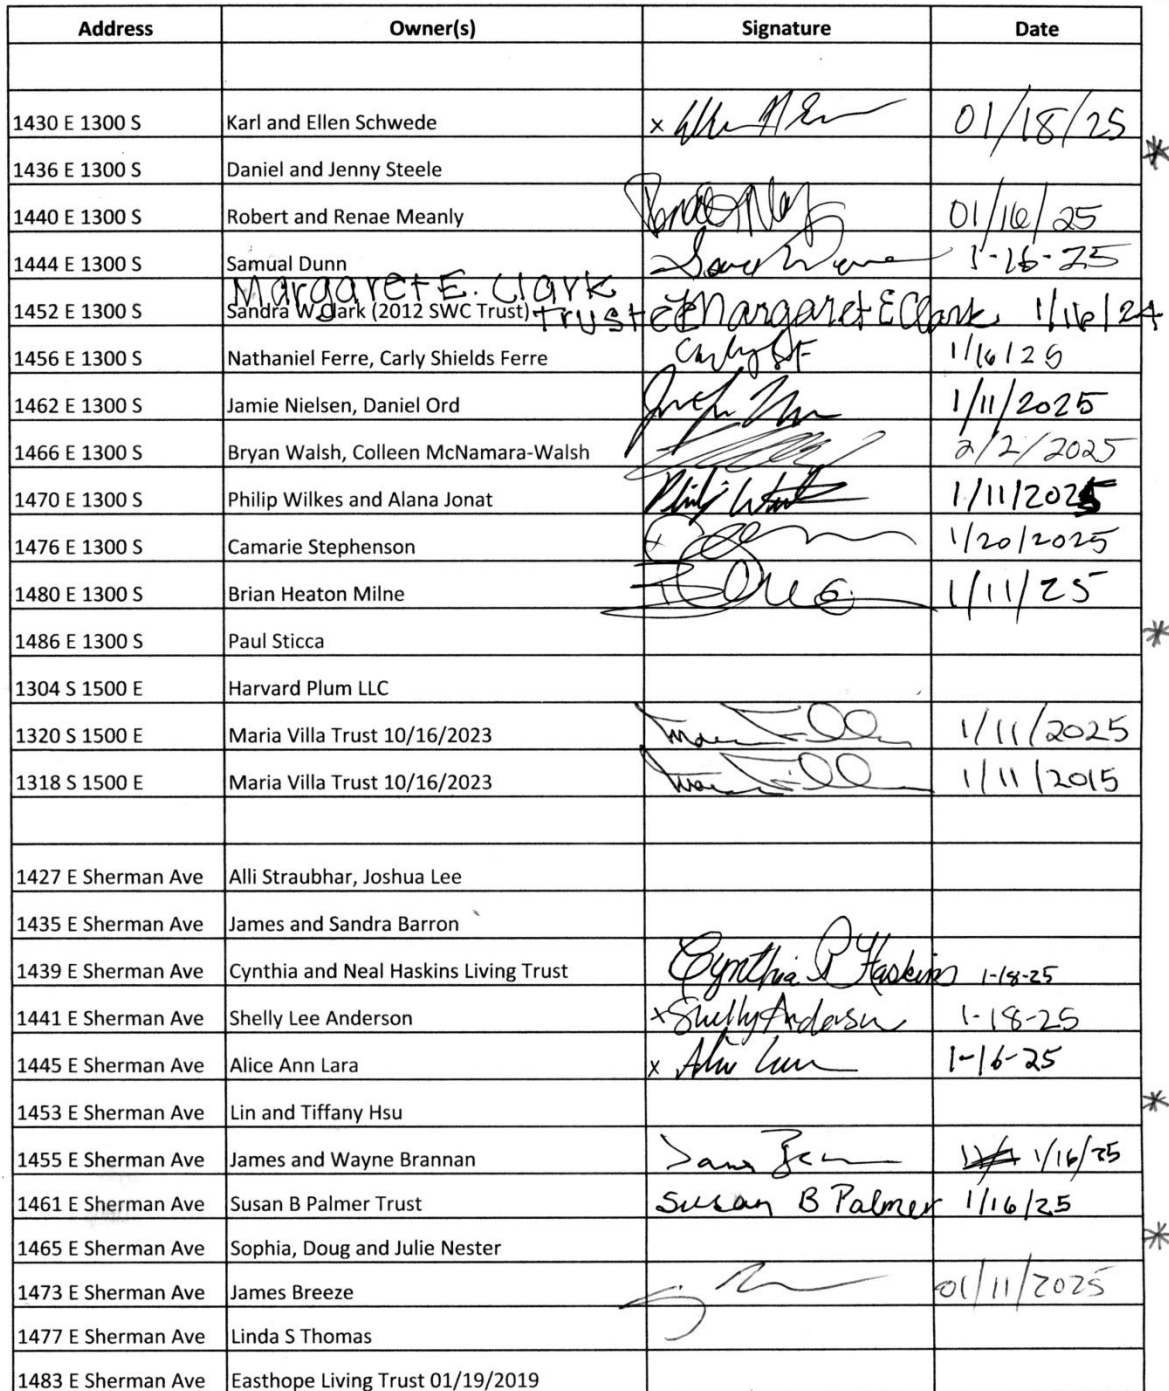 Address Owner(s) Signature Date
1430 E 1300 S Karl and Ellen Schwede x 01/18/25
*
1436 E 1300 S Daniel and Jenny Steele
1440 E 1300 S Robert and Renae Meanly 01/16/25
1444 E 1300 S Samual Dunn 1-16-25
Margaret E. Clark
1452 E 1300 S Sandra W Clark (2012 SWC Trust) Trustee Margaret E Clark 1/16/24
1456 E 1300 S Nathaniel Ferre, Carly Shields Ferre Carly SF 1/16/25
1462 E 1300 S Jamie Nielsen, Daniel Ord 1/11/2025
1466 E 1300 S Bryan Walsh, Colleen McNamara-Walsh 2/2/2025
1470 E 1300 S Philip Wilkes and Alana Jonat 1/11/2025
1476 E 1300 S Camarie Stephenson x 1/20/2025
1480 E 1300 S Brian Heaton Milne 1/11/25
1486 E 1300 S Paul Sticca *
1304 S 1500 E Harvard Plum LLC
1320 S 1500 E Maria Villa Trust 10/16/2023 1/11/2025
1318 S 1500 E Maria Villa Trust 10/16/2023 1/11/2015
1427 E Sherman Ave Alli Straubhar, Joshua Lee
1435 E Sherman Ave James and Sandra Barron
1439 E Sherman Ave Cynthia and Neal Haskins Living Trust Cynthia R Haskins 1-18-25
1441 E Sherman Ave Shelly Lee Anderson x Shelly Anderson 1-18-25
1445 E Sherman Ave Alice Ann Lara x 1-16-25
1453 E Sherman Ave Lin and Tiffany Hsu *
1455 E Sherman Ave James and Wayne Brannan 1/16/25
1461 E Sherman Ave Susan B Palmer Trust Susan B Palmer 1/16/25
1465 E Sherman Ave Sophia, Doug and Julie Nester *
1473 E Sherman Ave James Breeze 01/11/2025
1477 E Sherman Ave Linda S Thomas
1483 E Sherman Ave Easthope Living Trust 01/19/2019